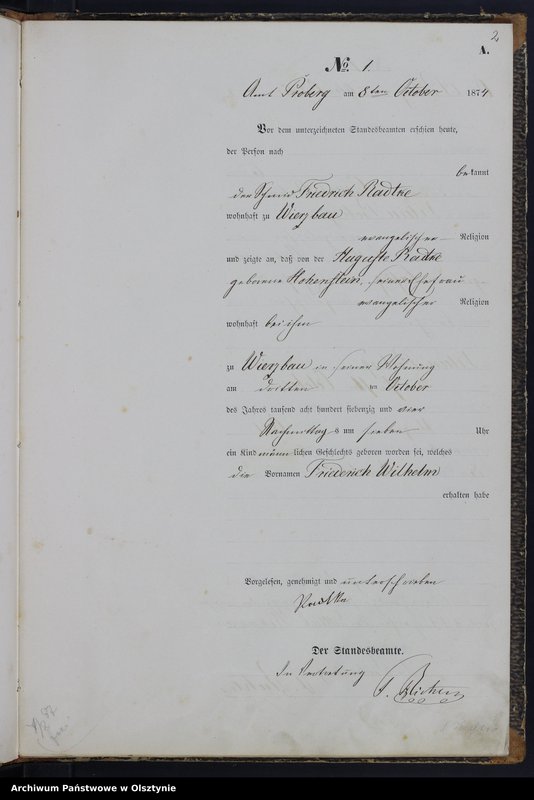 2
A.
No 1.
Amt Proberg am 8ten October 1874
Vor dem unterzeichneten Standesbeamten erschien heute,
der Person nach
bekannt
der Friedrich Radtke
wohnhaft zu Wierzbau
evangelischer Religion
und zeigte an, daß von der Auguste Radtke
geborene Hohenstein, seiner Ehefrau
evangelischer Religion
wohnhaft bei ihm
zu Wierzbau in seiner Wohnung
am dritten ten October
des Jahres tausend acht hundert siebenzig und vier
Nachmittags um sieben Uhr
ein Kind männlichen Geschlechts geboren worden sei, welches
die Vornamen Friederich Wilhelm
erhalten habe
Vorgelesen, genehmigt und unterschrieben
Der Standesbeamte.
In Vertretung
Archiwum Państwowe w Olsztynie